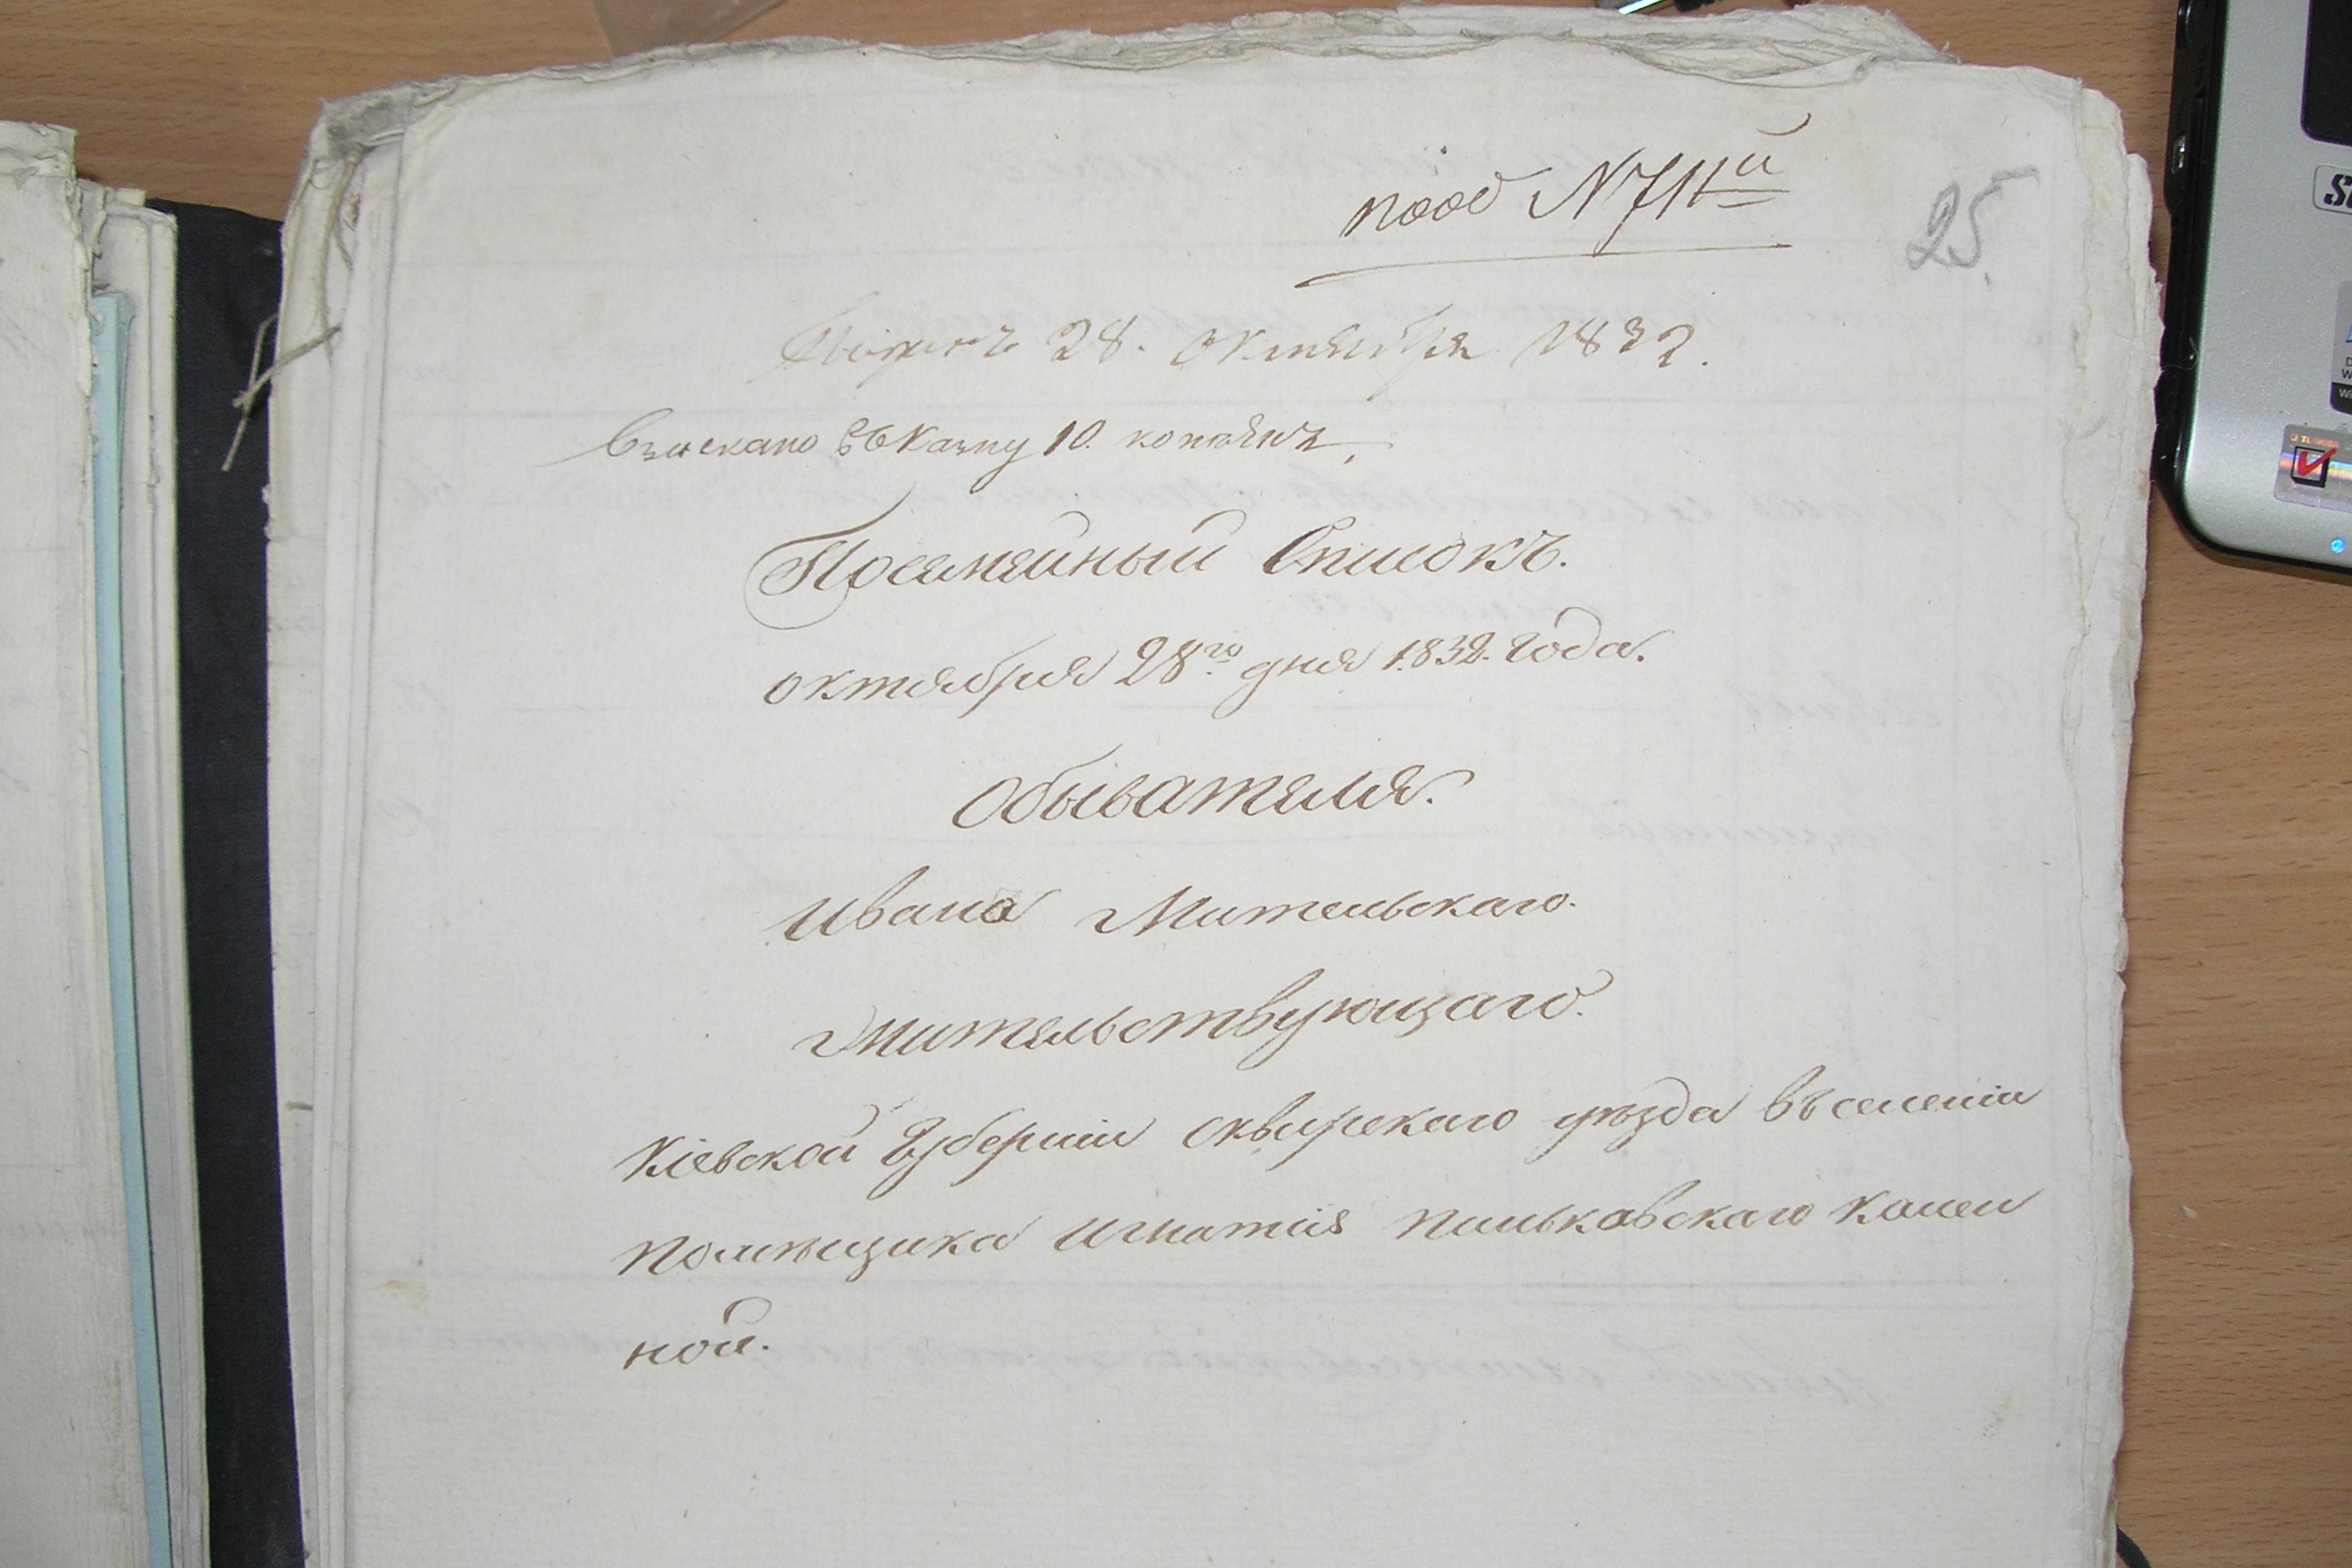 подъ N 711й
25.
28. октября 1832.
Взыскано въ Казну 10. копѣекъ,
Посемейный Списокъ.
октября 28го дня 1832. года.
Обывателя.
Ивана Мительскаго.
Жительствующаго.
Кіевской Губерніи Сквирскаго уѣзда въ селеніи
помѣщика Игнатія Пиньковскаго Камен
ной.